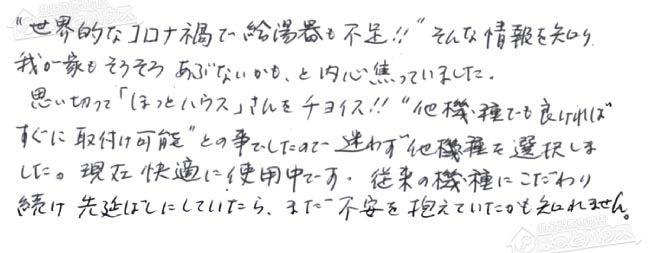 "世界的なコロナ禍で給湯器も不足!!"そんな情報を知り
我が家もそろそろあぶないかも、と内心焦っていました。
思い切って「ほっとハウス」さんをチョイス!!"他機種でも良ければ
すぐに取付け可能"との事でしたので迷わず他機種を選択しま
した。現在快適に使用中です。従来の機種にこだわり
続け先延ばしにしていたら、まだ不安を抱えていたかも知れません。